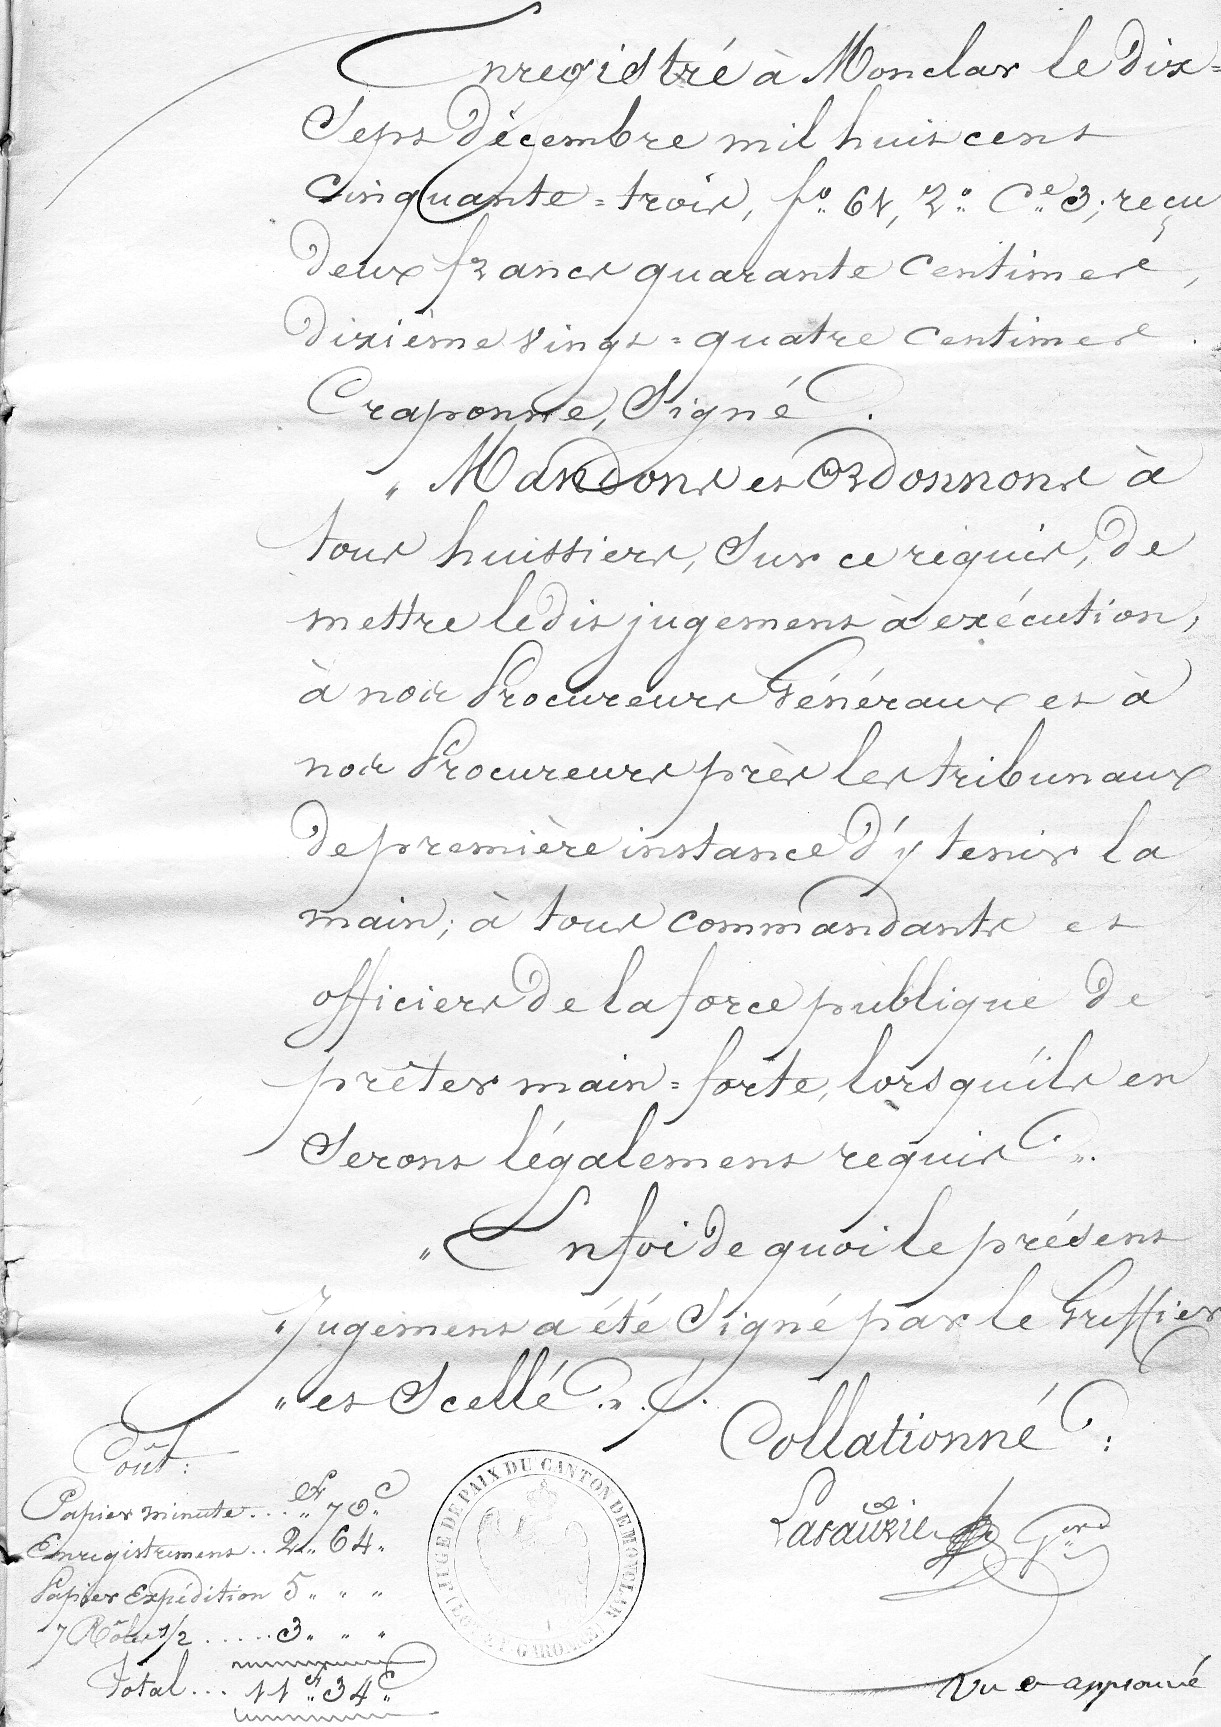 Enregistré à Monclar le dix=
Sept décembre mil huit cent
Cinquante=trois, f.º 61, 2.º C.e 3; reçu
deux francs quarante centimes,
dixième vingt=quatre centimes.
Craponne, Signé.
" Mandons et Ordonnons à
tous huissiers, Sur ce requis, de
mettre ledit jugement à exécution,
à nos Procureurs Généraux et à
nos Procureurs près les tribunaux
de première instance d'y tenir la
main; à tous commandants et
officiers de la force publique de
prêter main=forte, lorsqu'ils en
Seront légalement requis.".
" En foi de quoi le présent
" Jugement a été Signé par le Greffier
" et Scellé.".
Collationné:
Coût:
Papier minute... " f 70 c
Enregistrement.. 2 " 64 "
Papier Expédition 5 " " "
7 Rôles 1/2 ..... 3 " " "
Total... 11 f 34 c
JUGE DE PAIX DU CANTON DE MONCLAR (LOT ET GARONNE)
Vu et approuvé